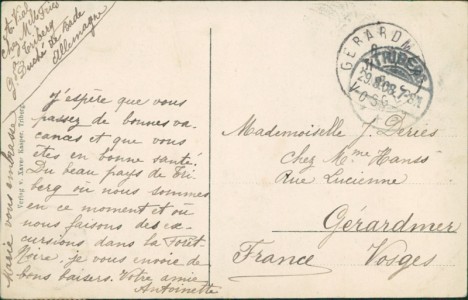 Chez Mlle Fries
Triberg
Gd Duché de Bade
Allemagne
J'espère que vous
passez de bonnes va-
cances et que vous
êtes en bonne santé.
Du beau pays de Tri
berg où nous sommes
en ce moment et où
nous faisons des ex-
cursions dans la Forêt
Noire, je vous envoie de
bons baisers. Votre amie
Antoinette
Marie vous embrasse
Verlag v. Xaver Kasper, Triberg.
GERARDM
TRIBERG
29.8.09.
Mademoiselle J. Deries
Chez Mme Hanss
Rue Lucienne
Gérardmer
France Vosges